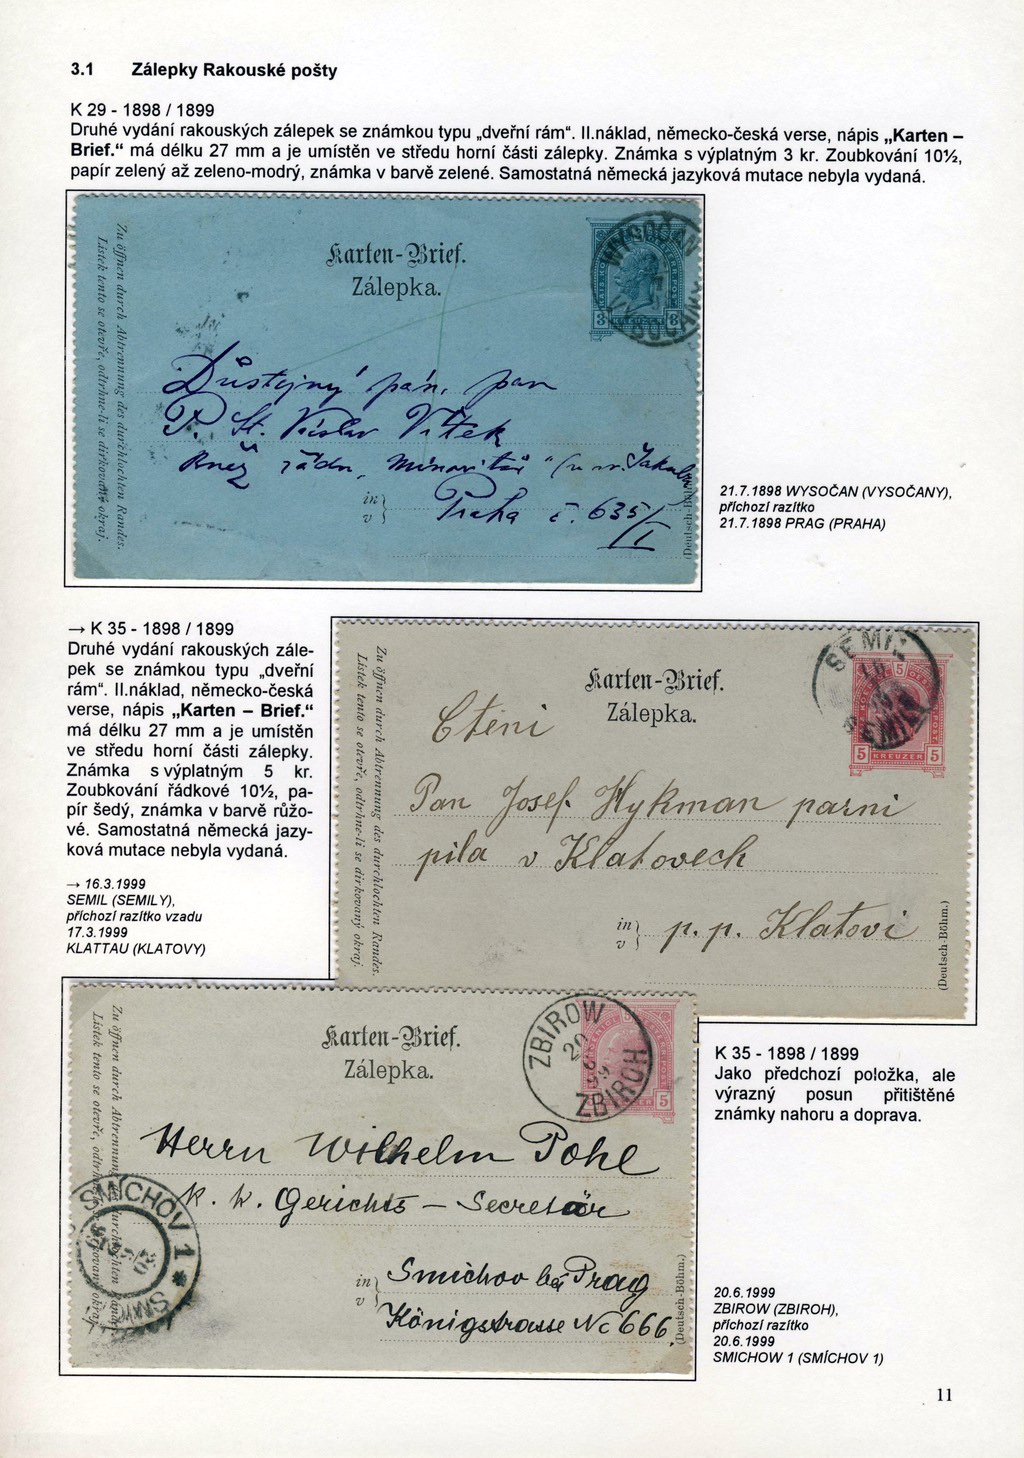 3.1 Zálepky Rakouské pošty
K 29 - 1898 / 1899
Druhé vydání rakouských zálepek se známkou typu „dveřní rám“. II.náklad, německo-česká verse, nápis „Karten –
Brief.“ má délku 27 mm a je umístěn ve středu horní části zálepky. Známka s výplatným 3 kr. Zoubkování 10½,
papír zelený až zeleno-modrý, známka v barvě zelené. Samostatná německá jazyková mutace nebyla vydaná.
Zu öffnen durch Abtrennung des durchlochten Randes.
Lístek tento se otevře, odtrhne-li se dírkovaný okraj.
Karten-Brief.
Zálepka.
WYSOČAN
VYSOČANY
3 KREUZER 3
Důstojný pán, pan
P. St. Vítek
Kněz řádu „Minoritů“ (u sv. Jakuba)
in
v
Praha č. 635/I
(Deutsch-Böhm.)
21.7.1898 WYSOČAN (VYSOČANY),
příchozí razítko
21.7.1898 PRAG (PRAHA)
→ K 35 - 1898 / 1899
Druhé vydání rakouských zále-
pek se známkou typu „dveřní
rám“. II.náklad, německo-česká
verse, nápis „Karten – Brief.“
má délku 27 mm a je umístěn
ve středu horní části zálepky.
Známka s výplatným 5 kr.
Zoubkování řádkové 10½, pa-
pír šedý, známka v barvě růžo-
vé. Samostatná německá jazy-
ková mutace nebyla vydaná.
→ 16.3.1999
SEMIL (SEMILY),
příchozí razítko vzadu
17.3.1999
KLATTAU (KLATOVY)
Zu öffnen durch Abtrennung des durchlochten Randes.
Lístek tento se otevře, odtrhne-li se dírkovaný okraj.
Karten-Brief.
Zálepka.
SEMIL
5
5 KREUZER 5
Ctění
Pan Josef Hykman parní
pila v Klatovech
in
v
p. p. Klatovi
(Deutsch-Böhm.)
Zu öffnen durch Abtrennung des durchlochten
Lístek tento se otevře,
Karten-Brief.
Zálepka.
ZBIROW
20
6
99
ZBIROH
5
Herrn Wilhelm Pohl
k. k. Gerichts – Secretär
SMICHOV 1
in
v
Smichov bei Prag
Königstrasse No 666.
(Deutsch-Böhm.)
K 35 - 1898 / 1899
Jako předchozí položka, ale
výrazný posun přitištěné
známky nahoru a doprava.
20.6.1999
ZBIROW (ZBIROH),
příchozí razítko
20.6.1999
SMICHOW 1 (SMÍCHOV 1)
11